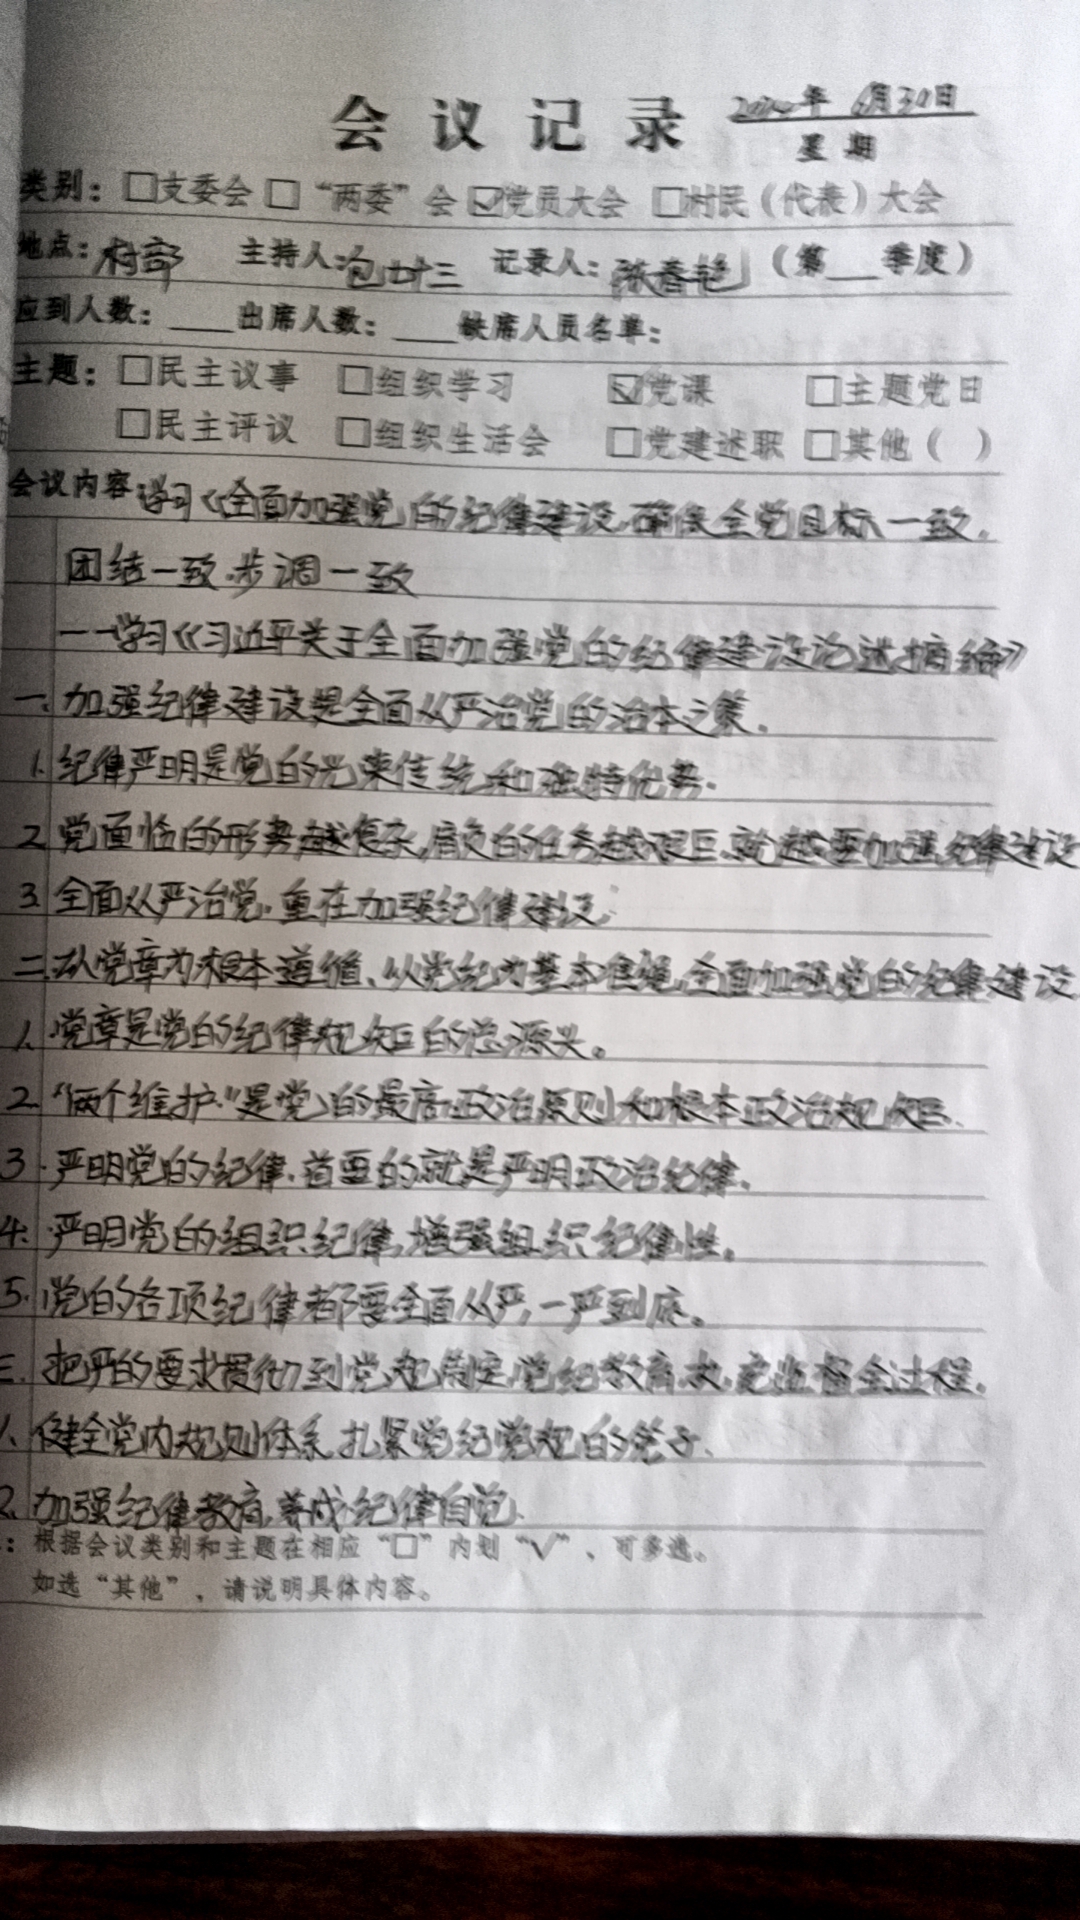 会议记录
年 6月30日
星期
类别：□支委会 □“两委”会 ☑党员大会 □村民（代表）大会
地点：村部 主持人：包廿三 记录人：张春艳 （第___季度）
应到人数：____出席人数：____缺席人员名单：
主题：□民主议事 □组织学习 ☑党课 □主题党日
□民主评议 □组织生活会 □党建述职 □其他（ ）
会议内容：学习《全面加强党的纪律建设，确保全党目标一致，
团结一致，步调一致
——学习《习近平关于全面加强党的纪律建设论述摘编》
一、加强纪律建设是全面从严治党的治本之策。
1. 纪律严明是党的光荣传统和独特优势.
2. 党面临的形势越复杂，肩负的任务越艰巨，就越要加强纪律建设
3. 全面从严治党，重在加强纪律建设.
二、以党章为根本遵循、以党纪为基本准绳，全面加强党的纪律建设
1. 党章是党的纪律规矩的总源头。
2. “两个维护”是党的最高政治原则和根本政治规矩.
3. 严明党的纪律，首要的就是严明政治纪律.
4. 严明党的组织纪律，增强组织纪律性。
5. 党的各项纪律都要全面从严，一严到底。
三. 把严的要求贯彻到党规制定，党纪教育，执纪监督全过程.
1. 健全党内规则体系，扎紧党纪党规的笼子.
2. 加强纪律教育，养成纪律自觉.
：根据会议类别和主题在相应“□”内划“√”，可多选。
如选“其他”，请说明具体内容。